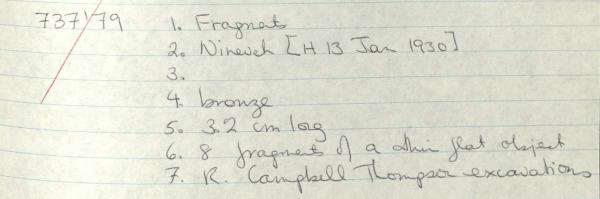 737'79 1. Fragments
2. Nineveh [H 13 Jan 1930]
3.
4. bronze
5. 3.2 cm long
6. 8 fragments of a thin flat object
7. R. Campbell Thompson excavations